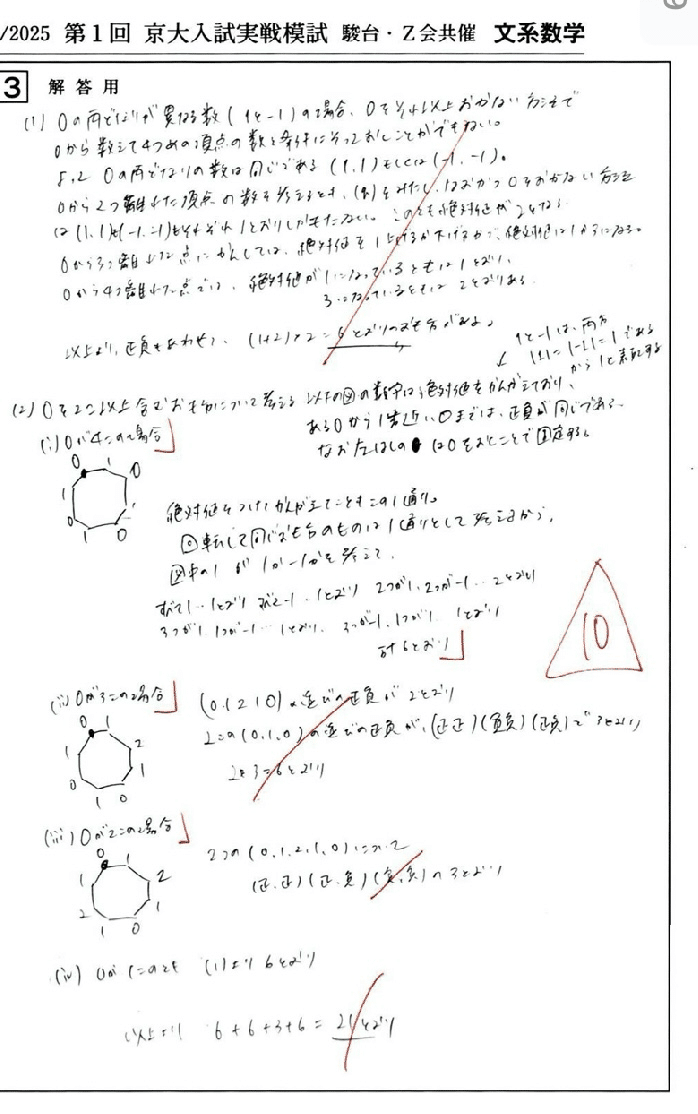 /2025 第1回 京大入試実戦模試 駿台・Z会共催 文系数学
3 解答用
(1) 0の両どなりが異なる数(1と-1)の場合、0をそれ以上おかない方法で
0から数えて4つめの頂点の数を条件にそっておくことができない。
よって 0の両どなりの数は同じである (1,1)もしくは(-1,-1)。
0から2つ離れた頂点の数を考えると、
は(1,1)も(-1,-1)もそれぞれ1とおりしかもたない。このとき絶対値が2となる
0から3つ離れた点にかんしては、絶対値を1上げるか下げるかで、絶対値は1か3になる。
0から4つ離れた点では、絶対値が1になっているときは1とおり、
3になっているときは2とおりある。
以上より、正負もあわせて、(1+2)×2=6とおりの
1と-1は、両方
|1|=|-1|=1である
から1と表記する
(2) 0を2こ以上含む 以下の図の数字は絶対値をかんがえており、
ある0から1番近い0までは、正負が同じである。
なお左はしの●は0をおくことで固定する。
(i) 0が4この場合
0 1 0 1 0 1 0 1
絶対値をつけてかんがえて この1通り。
回転して同じ ものは1通りとして考えるから、
図中の1が1か-1かを考えて、
すべて1…1とおり すべて-1…1とおり 2つが1、2つが-1…2とおり
3つが1 1つが-1…1とおり、3つが-1、1つが1…1とおり
計6とおり
10
(ii) 0が3この場合
0 1 2 1 0 1 0 1
(0,1,2,1,0)の並びの正負が2とおり
2この(0,1,0)の並びの正負が、(正正)(負負)(正負)で3とおり
2×3=6とおり
(iii) 0が2この場合
0 1 2 1 0 1 2 1
2つの(0,1,2,1,0)について
(正,正)(正,負)(負,負)の3とおり
(iv) 0が1このとき (1)より6とおり
以上より 6+6+3+6=21とおり